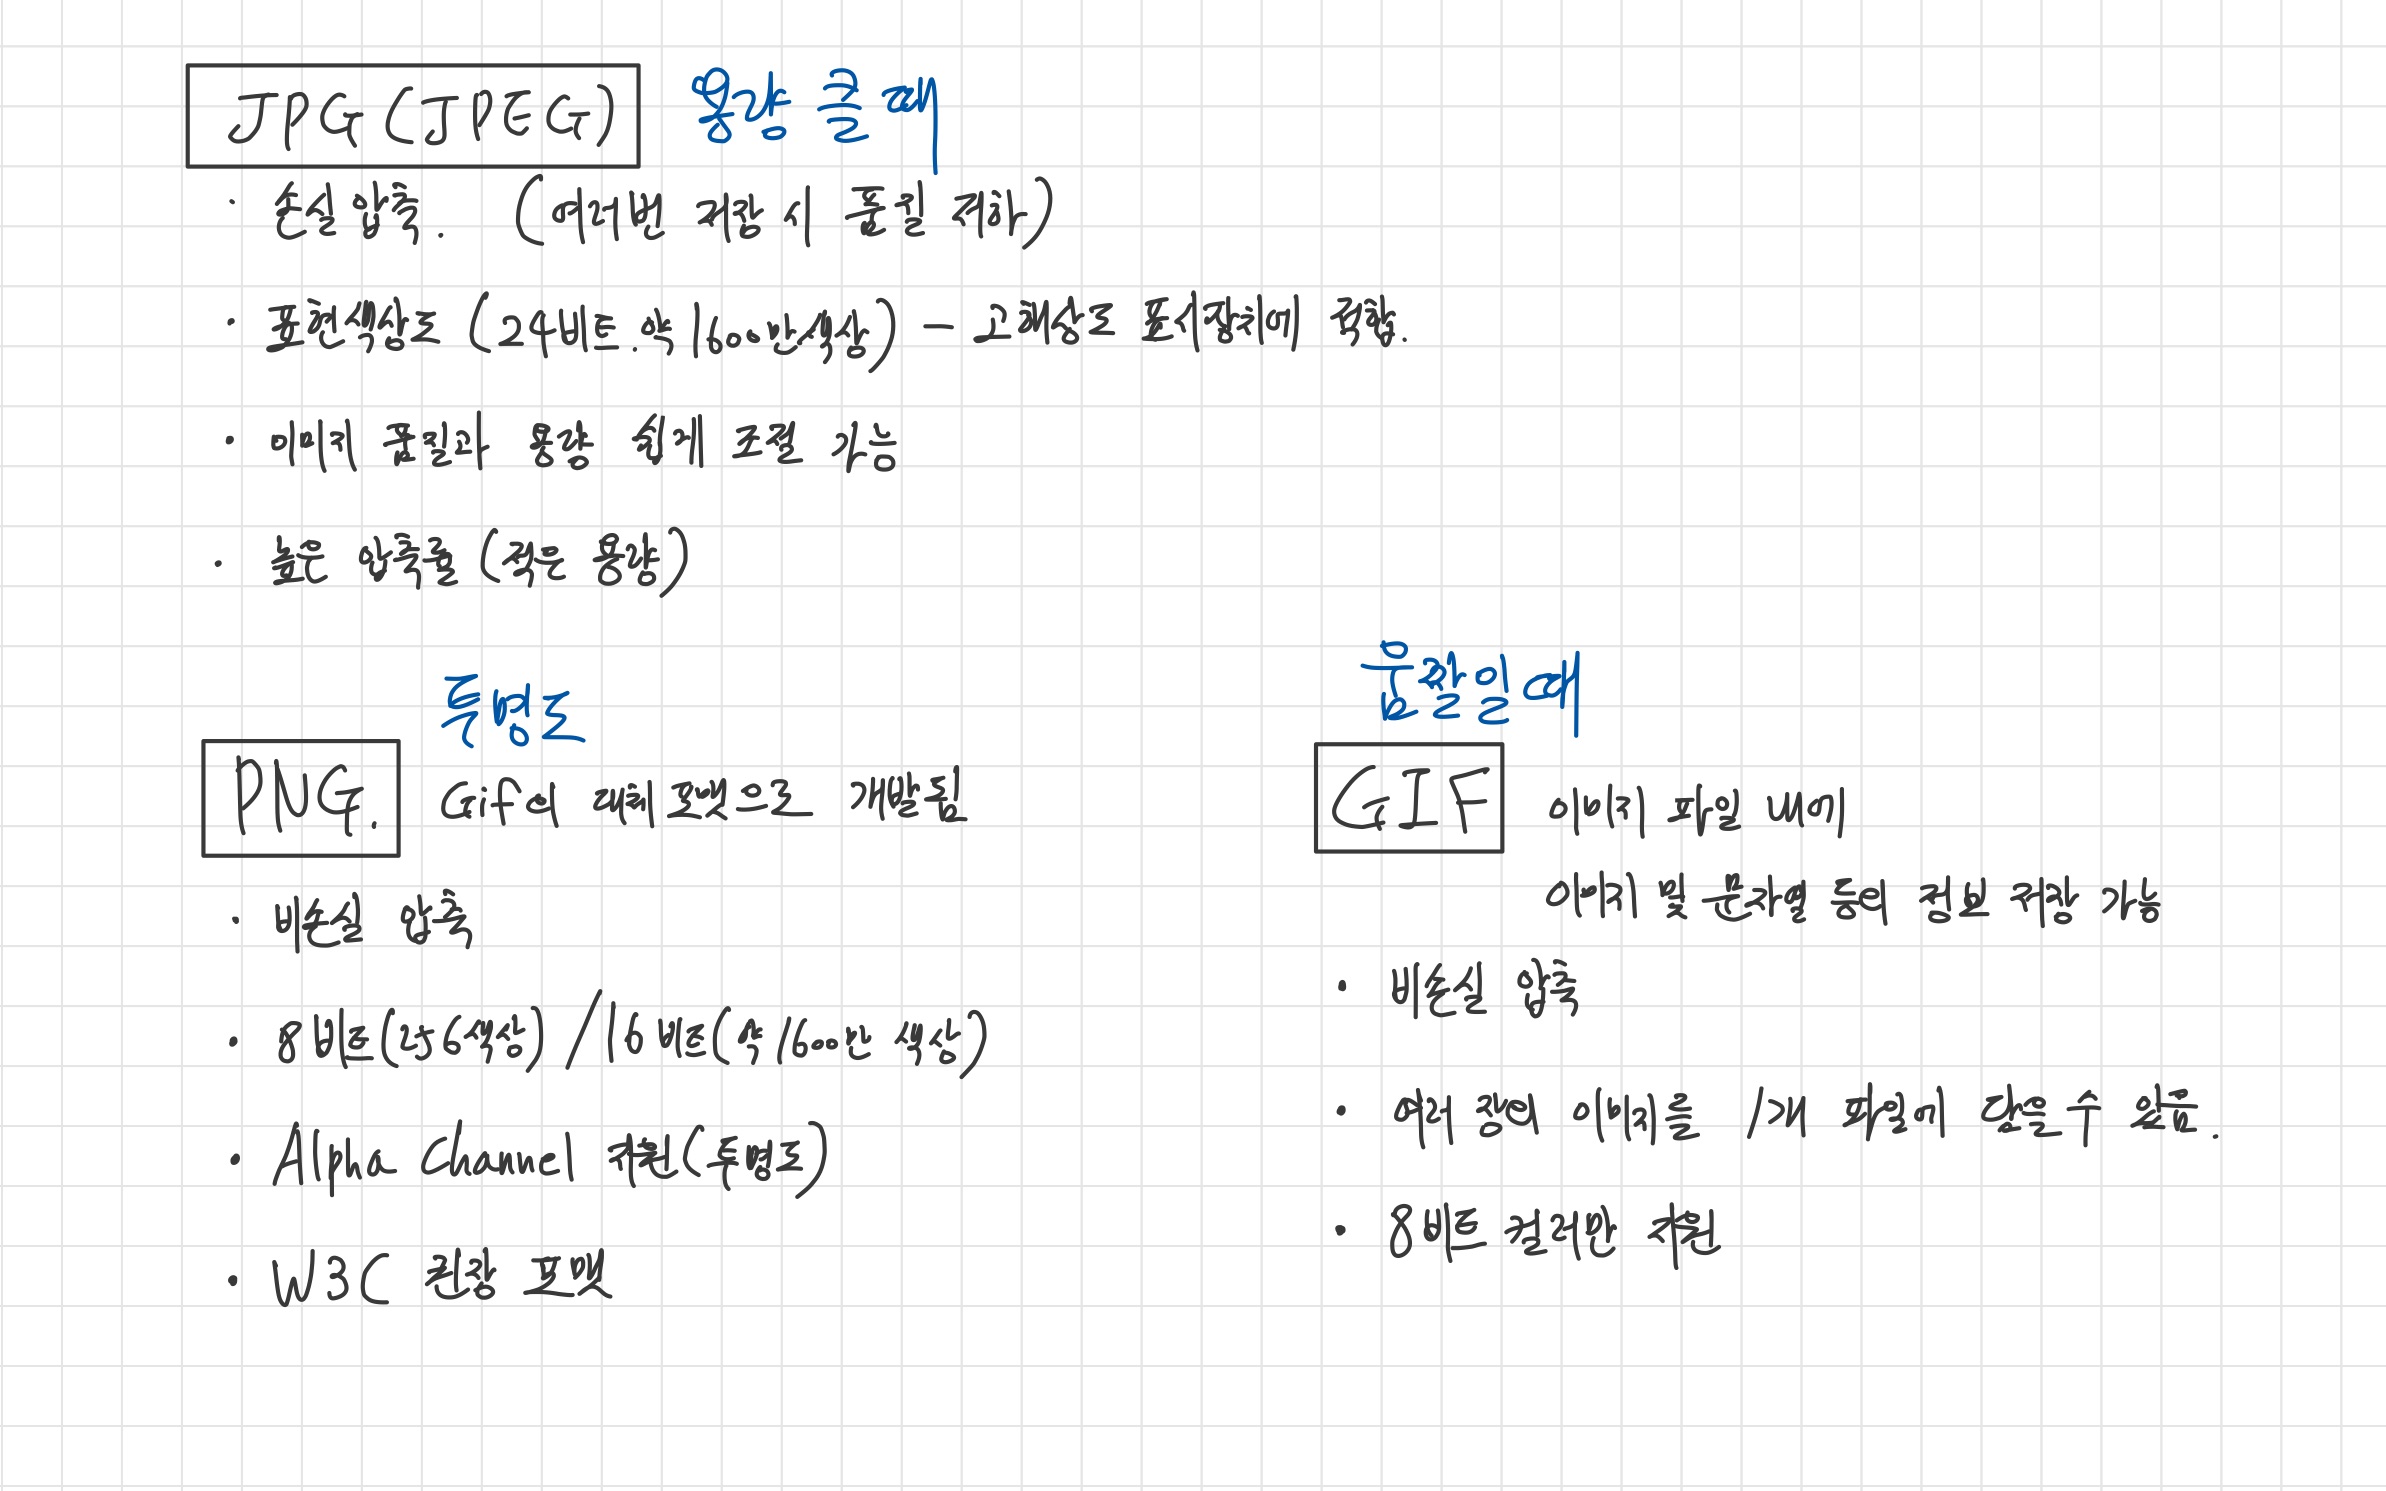 JPG(JPEG) 용량 클 때
· 손실 압축. (여러번 저장 시 품질 저하)
· 표현색상도 (24비트. 약 1600만색상) — 고해상도 표시장치에 적합.
· 이미지 품질과 용량 쉽게 조절 가능
· 높은 압축률 (적은 용량)
투명도
PNG. Gif의 대체 포맷으로 개발됨
· 비손실 압축
· 8비트(256색상) / 16비트(약 1600만 색상)
· Alpha Channel 지원(투명도)
· W3C 권장 포맷
움짤일 때
GIF 이미지 파일 내에
이미지 및 문자열 등의 정보 저장 가능
· 비손실 압축
· 여러 장의 이미지를 1개 파일에 담을 수 있음.
· 8비트 컬러만 지원